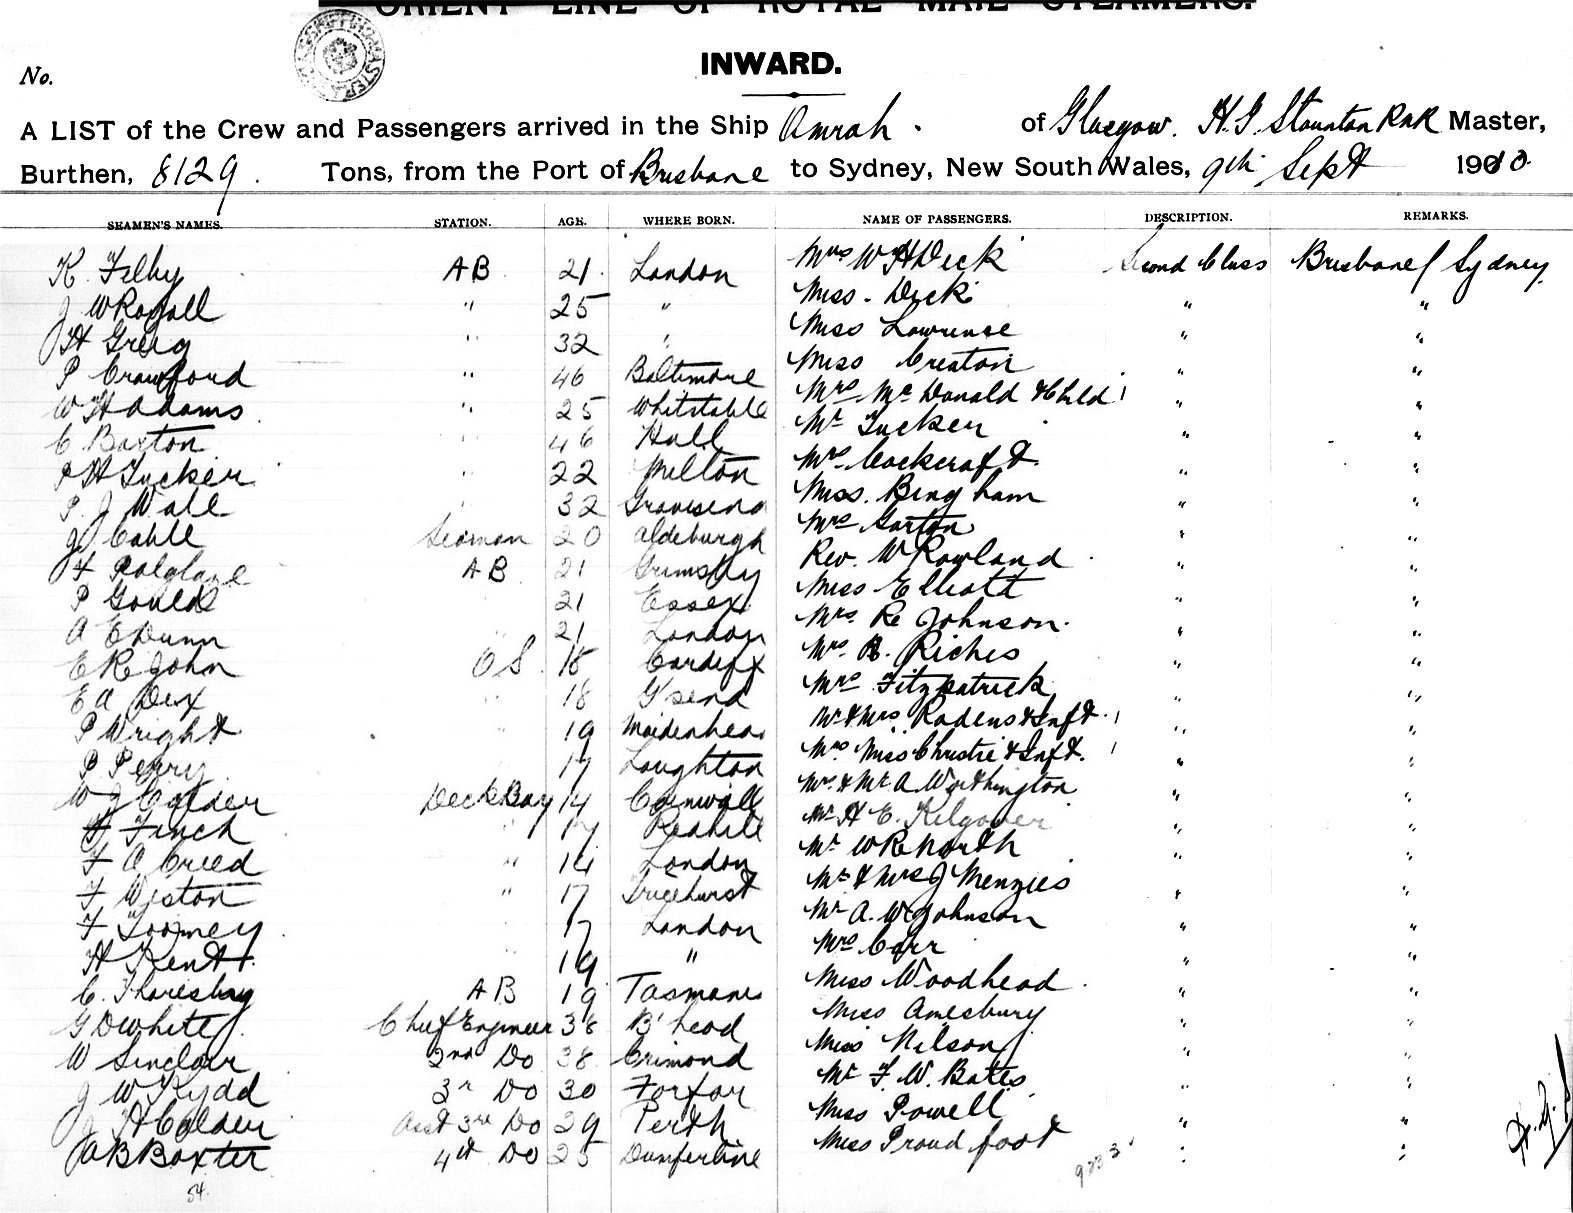 ORIENT LINE OF ROYAL MAIL STEAMERS.
INWARD.
No.
A LIST of the Crew and Passengers arrived in the Ship Omrah. of Glasgow. H.G. Staunton RNR Master,
Burthen, 8129. Tons, from the Port of Brisbane to Sydney, New South Wales, 9th Sept 1910
SEAMEN'S NAMES. STATION. AGE. WHERE BORN. NAME OF PASSENGERS. DESCRIPTION. REMARKS.
K Felby AB 21 London Mrs W H Deck Second Class Brisbane / Sydney
J W " 25 " Miss Deck " "
H Greig " 32 " Miss Lawrence " "
P Crawford " 46 Baltimore Miss Creston " "
W H Adams " 25 Whitstable Mrs McDonald & Child 1 " "
C Barton " 46 Hull Mr Tucker " "
P H Tucker " 22 Milton Mrs Cockcraft " "
P. J Wall " 32 Gravesend Miss. Bingham " "
J Cable Seaman 20 Aldeburgh Mrs Garton " "
F Polglase AB 21 Grimsby Rev. W Rowland " "
P Gould 21 Essex Miss Elliott " "
A E Dunn " 21 London Mrs. Re Johnson. " "
E R John OS 18 Cardiff Mrs. R. Riches " "
E A Dex " 18 G'send Mrs Fitzpatrick " "
P Wright " 19 Maidenhead Mr & Mrs Radens & Inft. 1 " "
P Perry 17 Loughton Mrs Miss Christie & Inft. 1 " "
W J Calder Deck Boy 14 Cornwall Mrs & Mr A Worthington " "
Finch " 17 Redhill Mr H E. Kilgover " "
F A Creed " 14 London Mr W R North " "
F Weston " 17 Ticehurst Mr & Mrs J Menzies " "
F Toomey 17 London Mr A. W Johnson " "
H Kent " 19 " Mrs Carr " "
C. Thoresby AB 19 Tasmania Miss Woodhead " "
G D White Chief Engineer 38 B'head Miss Amesbury " "
W Sinclair 2nd Do 38 Crimond Miss Nilson " "
J W Kydd 3r Do 30 Forfar Mr F. W. Bates " "
J H Calder Asst 3rd Do 29 Perth Miss Powell " "
A B Baxter 4th Do 25 Dumferline Miss Proudfoot " "
54